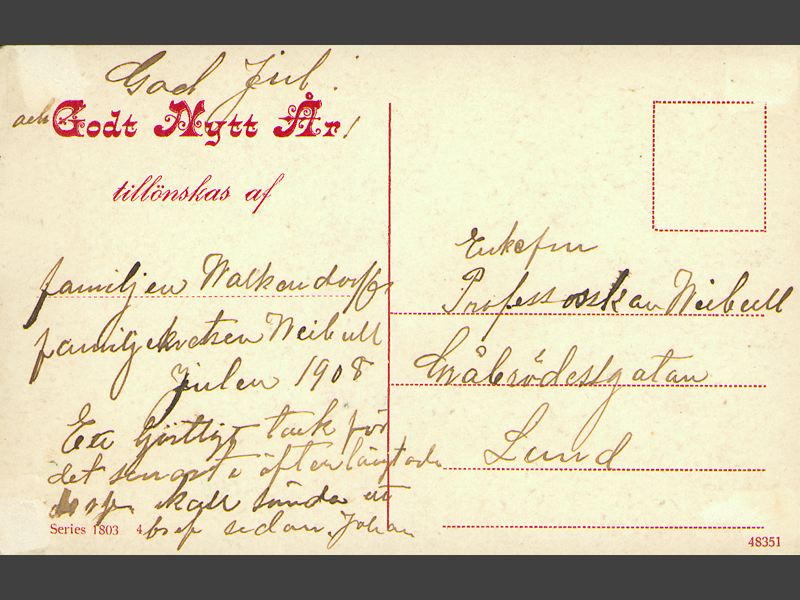 God Jul!
och Godt Nytt År!
tillönskas af
familjen Walkendorffs
familjekretsen Weibull
Julen 1908
Ett hjertligt tack för
det senaste efterlängtade
skall sända ett
bref sedan. Johan
Series 1803 4
Enkefru
Professorskan Weibull
Gråbrödesgatan
Lund
48351